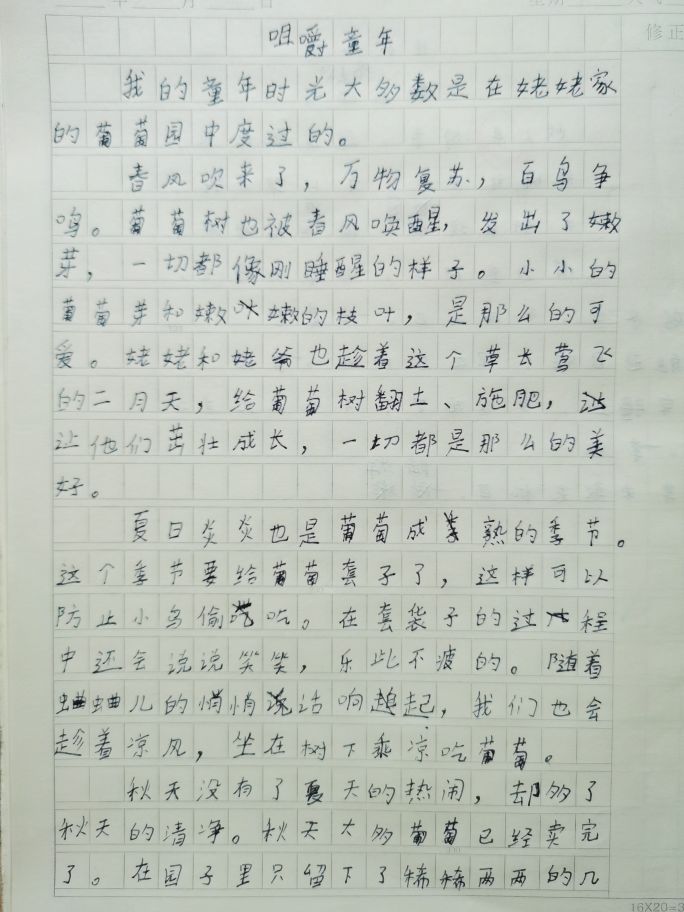 咀嚼童年
我的童年时光大多数是在姥姥家
的葡萄园中度过的。
春风吹来了，万物复苏，百鸟争
鸣。葡萄树也被春风唤醒，发出了嫩
芽，一切都像刚睡醒的样子。小小的
葡萄芽和嫩嫩的枝叶，是那么的可
爱。姥姥和姥爷也趁着这个草长莺飞
的二月天，给葡萄树翻土、施肥，
让他们茁壮成长，一切都是那么的美
好。
夏日炎炎也是葡萄成熟的季节。
这个季节要给葡萄套子了，这样可以
防止小鸟偷吃。在套袋子的过程
中还会说说笑笑，乐此不疲的。随着
蛐蛐儿的悄悄话响起，我们也会
趁着凉风，坐在树下乘凉吃葡萄。
秋天没有了夏天的热闹，却多了
秋天的清净。秋天大多葡萄已经卖完
了。在园子里只留下了稀稀两两的几
修正
16X20=3